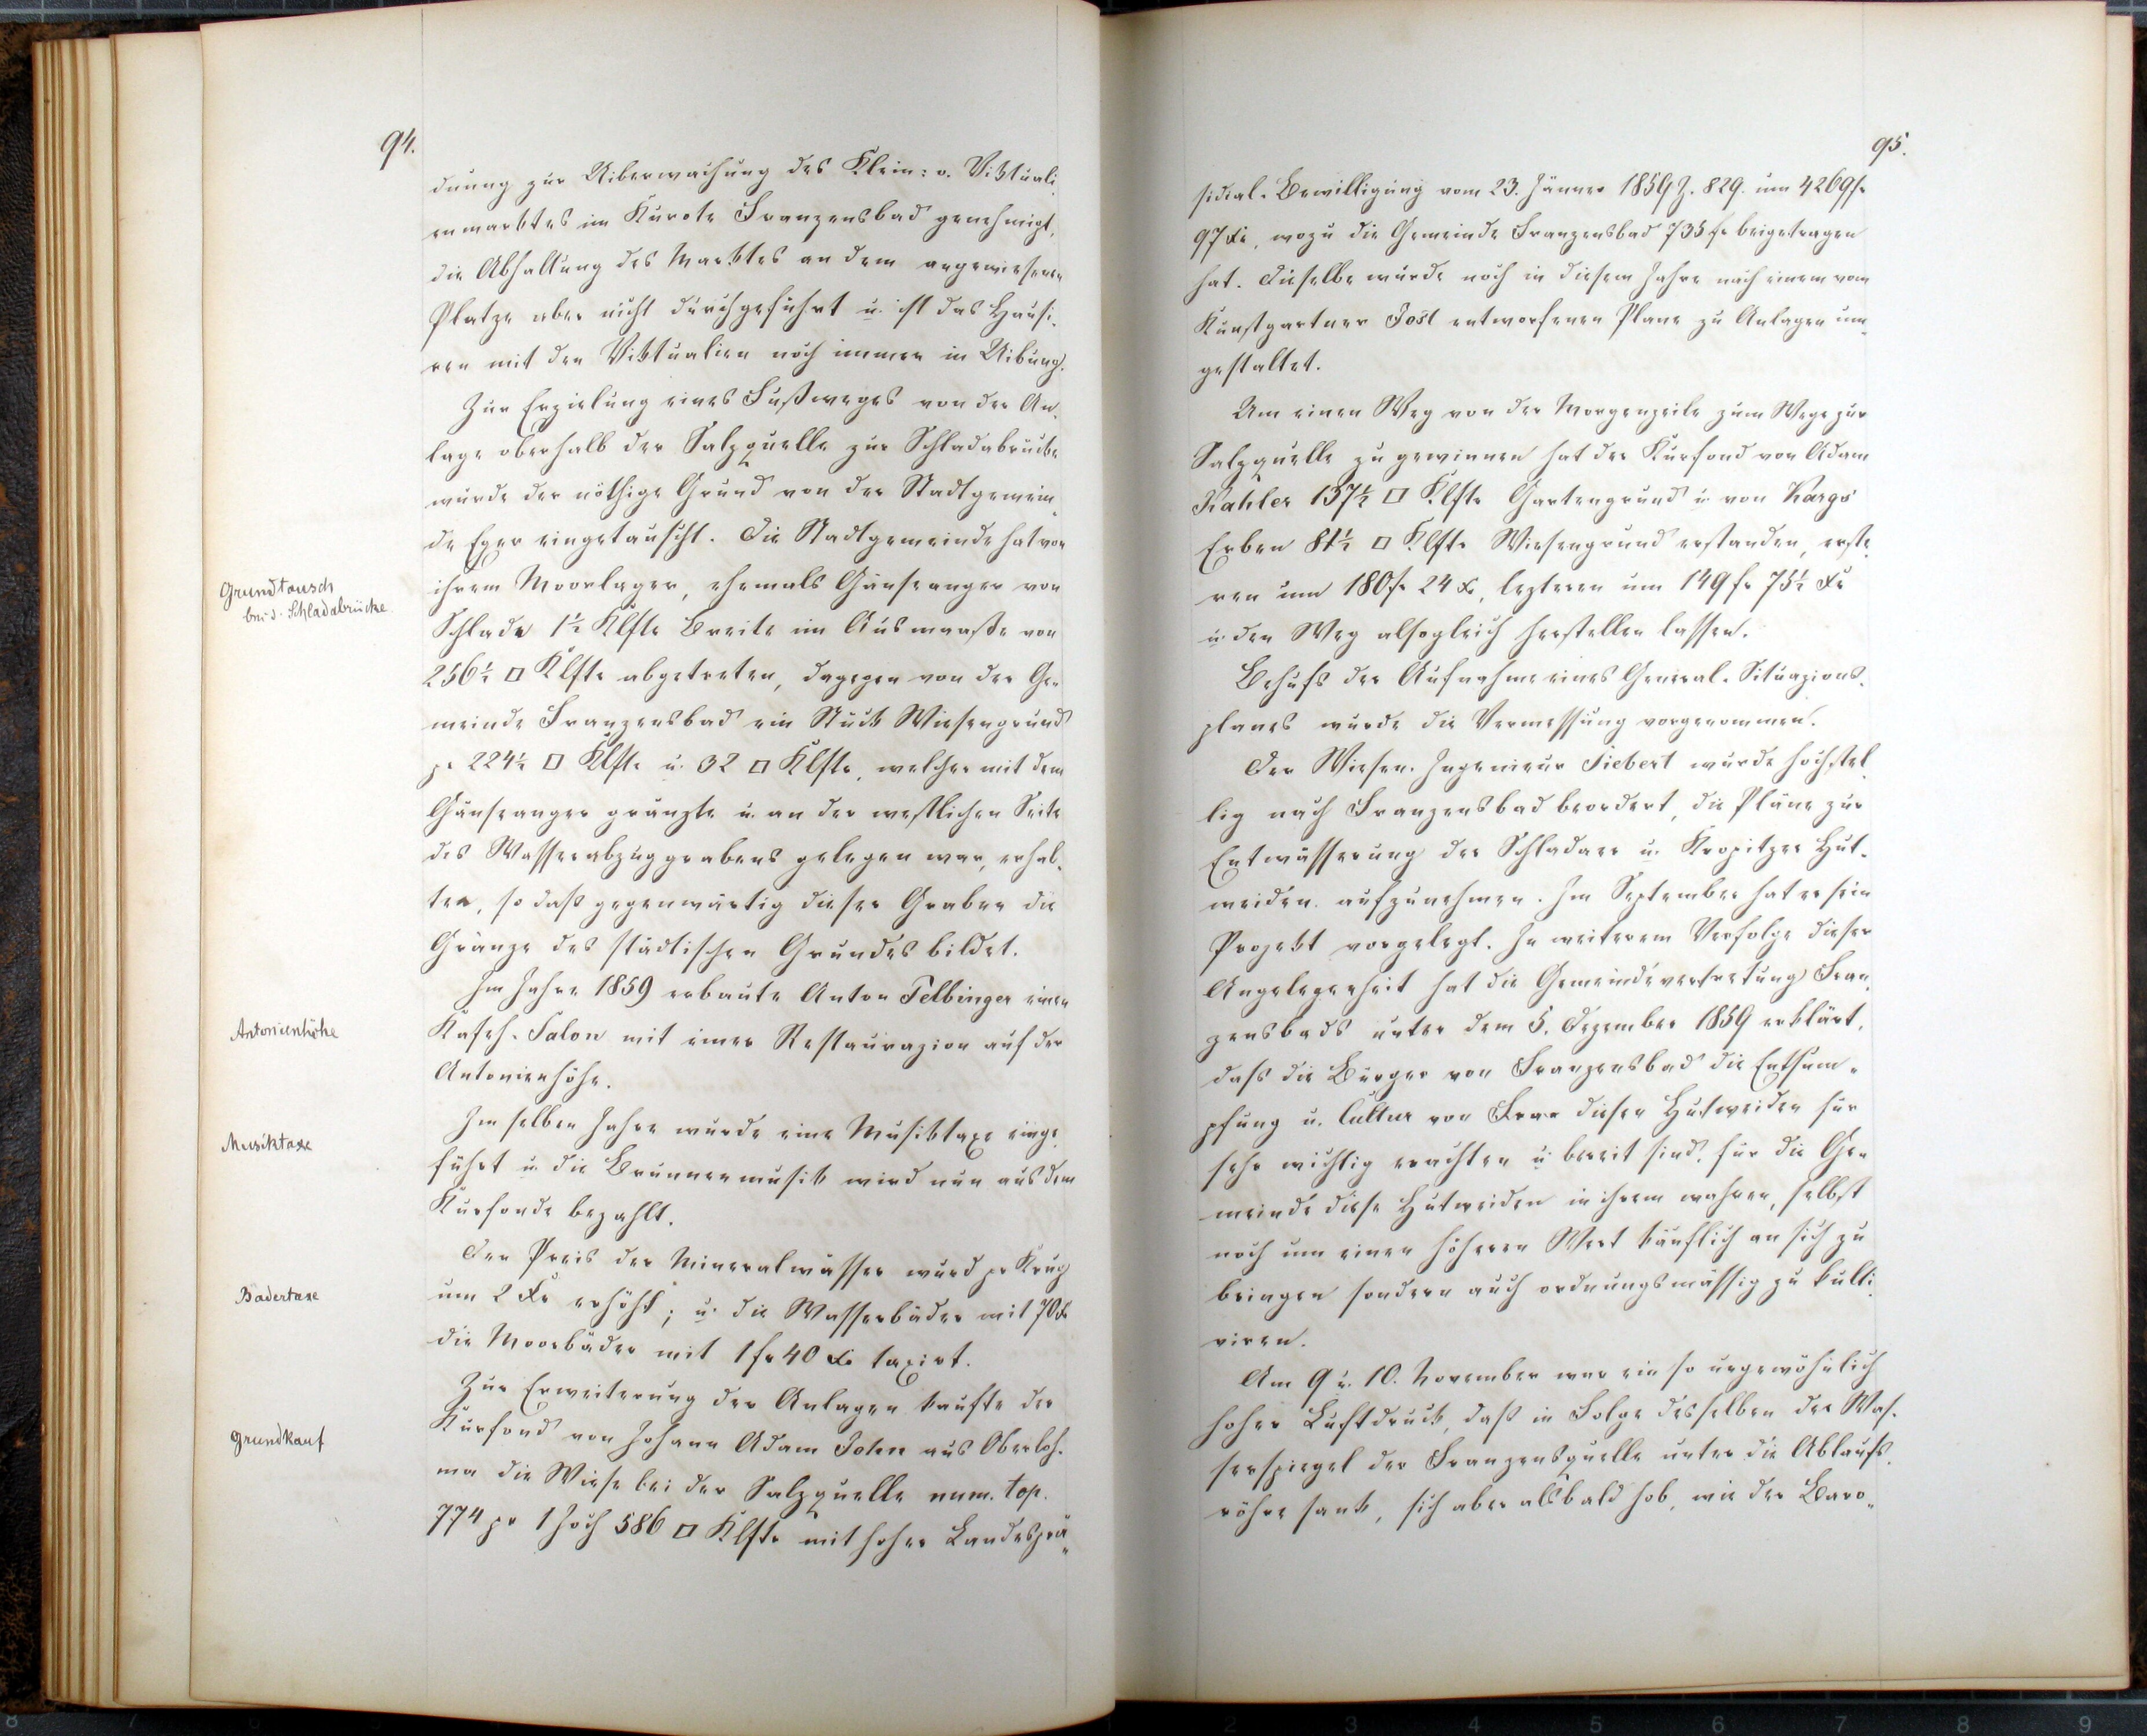 94.
dnung zur Uiberwachung des Klein: u. Viktuali¬
enmarktes im Kurorte Franzensbad genehmigt,
die Abhaltung des Marktes an dem angewiesenen
Platze aber nicht durchgeführt u. ist das Hausi¬
ren mit den Viktualien noch immer in Uibung.
Zur Erzielung eines Fußweges von der An¬
lage oberhalb der Salzquelle zur Schladabrücke
wurde der nöthige Grund von der Stadtgemein¬
de Eger eingetauscht. Die Stadtgemeinde hat von
Grundtausch
bei d. Schladabrücke
ihrem Moorlager, ehemals Gänseanger von
Schlada 1½ Klftr Breite im Ausmaaße von
256½ □ Klftr abgetreten, dagegen von der Ge¬
meinde Franzensbad ein Stück Wiesengrund
pr 224½ □ Klftr u. 32 □ Klftr, welcher mit dem
Gänseanger gränzte u. an der westlichen Seite
des Wasserabzuggrabens gelegen war, erhal¬
ten, so daß gegenwärtig dieser Graben die
Gränze des städtischen Grundes bildet.
Im Jahre 1859 erbaute Anton Felbinger einen
Antonienhöhe
Kafeh-Salon mit einer Restaurazion auf der
Antonienhöhe.
Im selben Jahre wurde eine Musiktaxe einge¬
Musiktaxe
führt u. die Brunnenmusik wird nun aus dem
Kurfonde bezahlt.
Der Preis der Mineralwässer wurd pr Krug
Bädertaxe
um 2 Xr erhöht; u. die Wasserbäder mit 70 Xr
die Moorbäder mit 1 fr 40 Xr taxirt.
Zur Erweiterung der Anlagen kaufte der
Grundkauf
Kurfond von Johann Adam John aus Oberloh¬
ma die Wiese bei der Salzquelle num. top.
774 pr 1 Joch 586 □ Klftr mit hoher Landesprä¬
95.
sidial-Bewilligung vom 23. Jänner 1859 Z. 829. um 4269 fr
97 Xr, wozu die Gemeinde Franzensbad 735 fr beigetragen
hat. Dieselbe wurde noch in diesem Jahre nach einem vom
Kunstgartner Jost entworfenen Plane zu Anlagen um¬
gestaltet.
Um einen Weg von der Morgenzeile zum Wege zur
Salzquelle zu gewinnen hat der Kurfond von Adam
Kahler 137½ □ Klftr Gartengrund u. von Kargs
Erben 81½ □ Klftr Wiesengrund erstanden, erste¬
ren um 180 fr 24 Xr, lezteren um 149 fr 75½ Xr
u. den Weg alsogleich herstellen lassen.
Behufs der Aufnahme eines General-Situazions¬
planes wurde die Vermessung vorgenommen.
Der Wiesen-Ingenieur Siebert wurde hochstel¬
lig nach Franzensbad beordert, die Pläne zur
Entwässerung der Schladaer u. Kropitzer Hut¬
weiden aufzunehmen. Im September hat er sein
Projekt vorgelegt. In weiterem Verfolge dieser
Angelegenheit hat die Gemeindevertretung Fran¬
zensbads unter dem 5. Dezember 1859 erklärt,
daß die Bürger von Franzensbad die Entsum¬
pfung u. Cultur von dieser Hutweiden für
sehr wichtig erachten u. bereit sind, für die Ge¬
meinde diese Hutweiden in ihrem wahren, selbst
noch um einen höheren Wert käuflich an sich zu
bringen sondern auch ordnungsmässig zu kulti¬
viren.
Am 9 u. 10. November war ein so ungewöhnlich
hoher Luftdruck, daß in Folge desselben der Was¬
serspiegel der Franzensquelle unter die Ablaufs¬
röhre sank, sich aber alsbald hob, wie der Baro¬